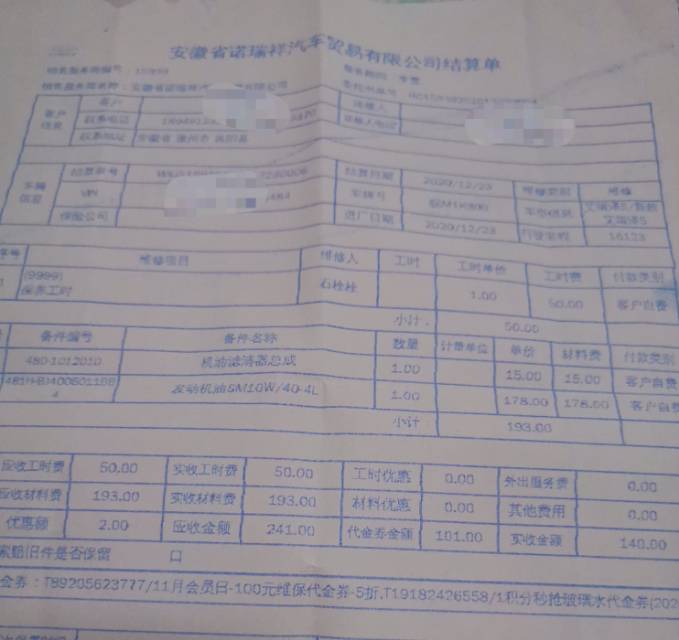 安徽省诺瑞祥汽车贸易有限公司结算单
销售服务商编号：
销售服务商名称：安徽省诺瑞祥汽 有限公司
客户信息 客户 送修人
联系电话 送修人电话
联系地址 安徽省 滁州市 凤阳县
车辆信息 结算单号 结算日期 2020/12/23 维修类别 维修
VIN 车牌号 车型信息 艾瑞泽5
保险公司 进厂日期 2020/12/23 行驶里程 16123
序号 维修项目 维修人 工时 工时单价 工时费 付款类别
(9999)
保养工时 石栓栓 1.00 50.00 客户自费
小计： 50.00
备件编号 备件名称 数量 计量单位 单价 材料费 付款类别
480-1012010 机油滤清器总成 1.00 15.00 15.00 客户自费
发动机油SM10W/40-4L 1.00 178.00 178.00 客户自费
小计： 193.00
应收工时费 50.00 实收工时费 50.00 工时优惠 0.00 外出服务费 0.00
应收材料费 193.00 实收材料费 193.00 材料优惠 0.00 其他费用 0.00
优惠额 2.00 应收金额 241.00 代金券金额 101.00 实收金额 140.00
索赔旧件是否保留 口
金券：T89205623777/11月会员日-100元维保代金券-5折,T19182426558/1积分秒抢玻璃水代金券(202